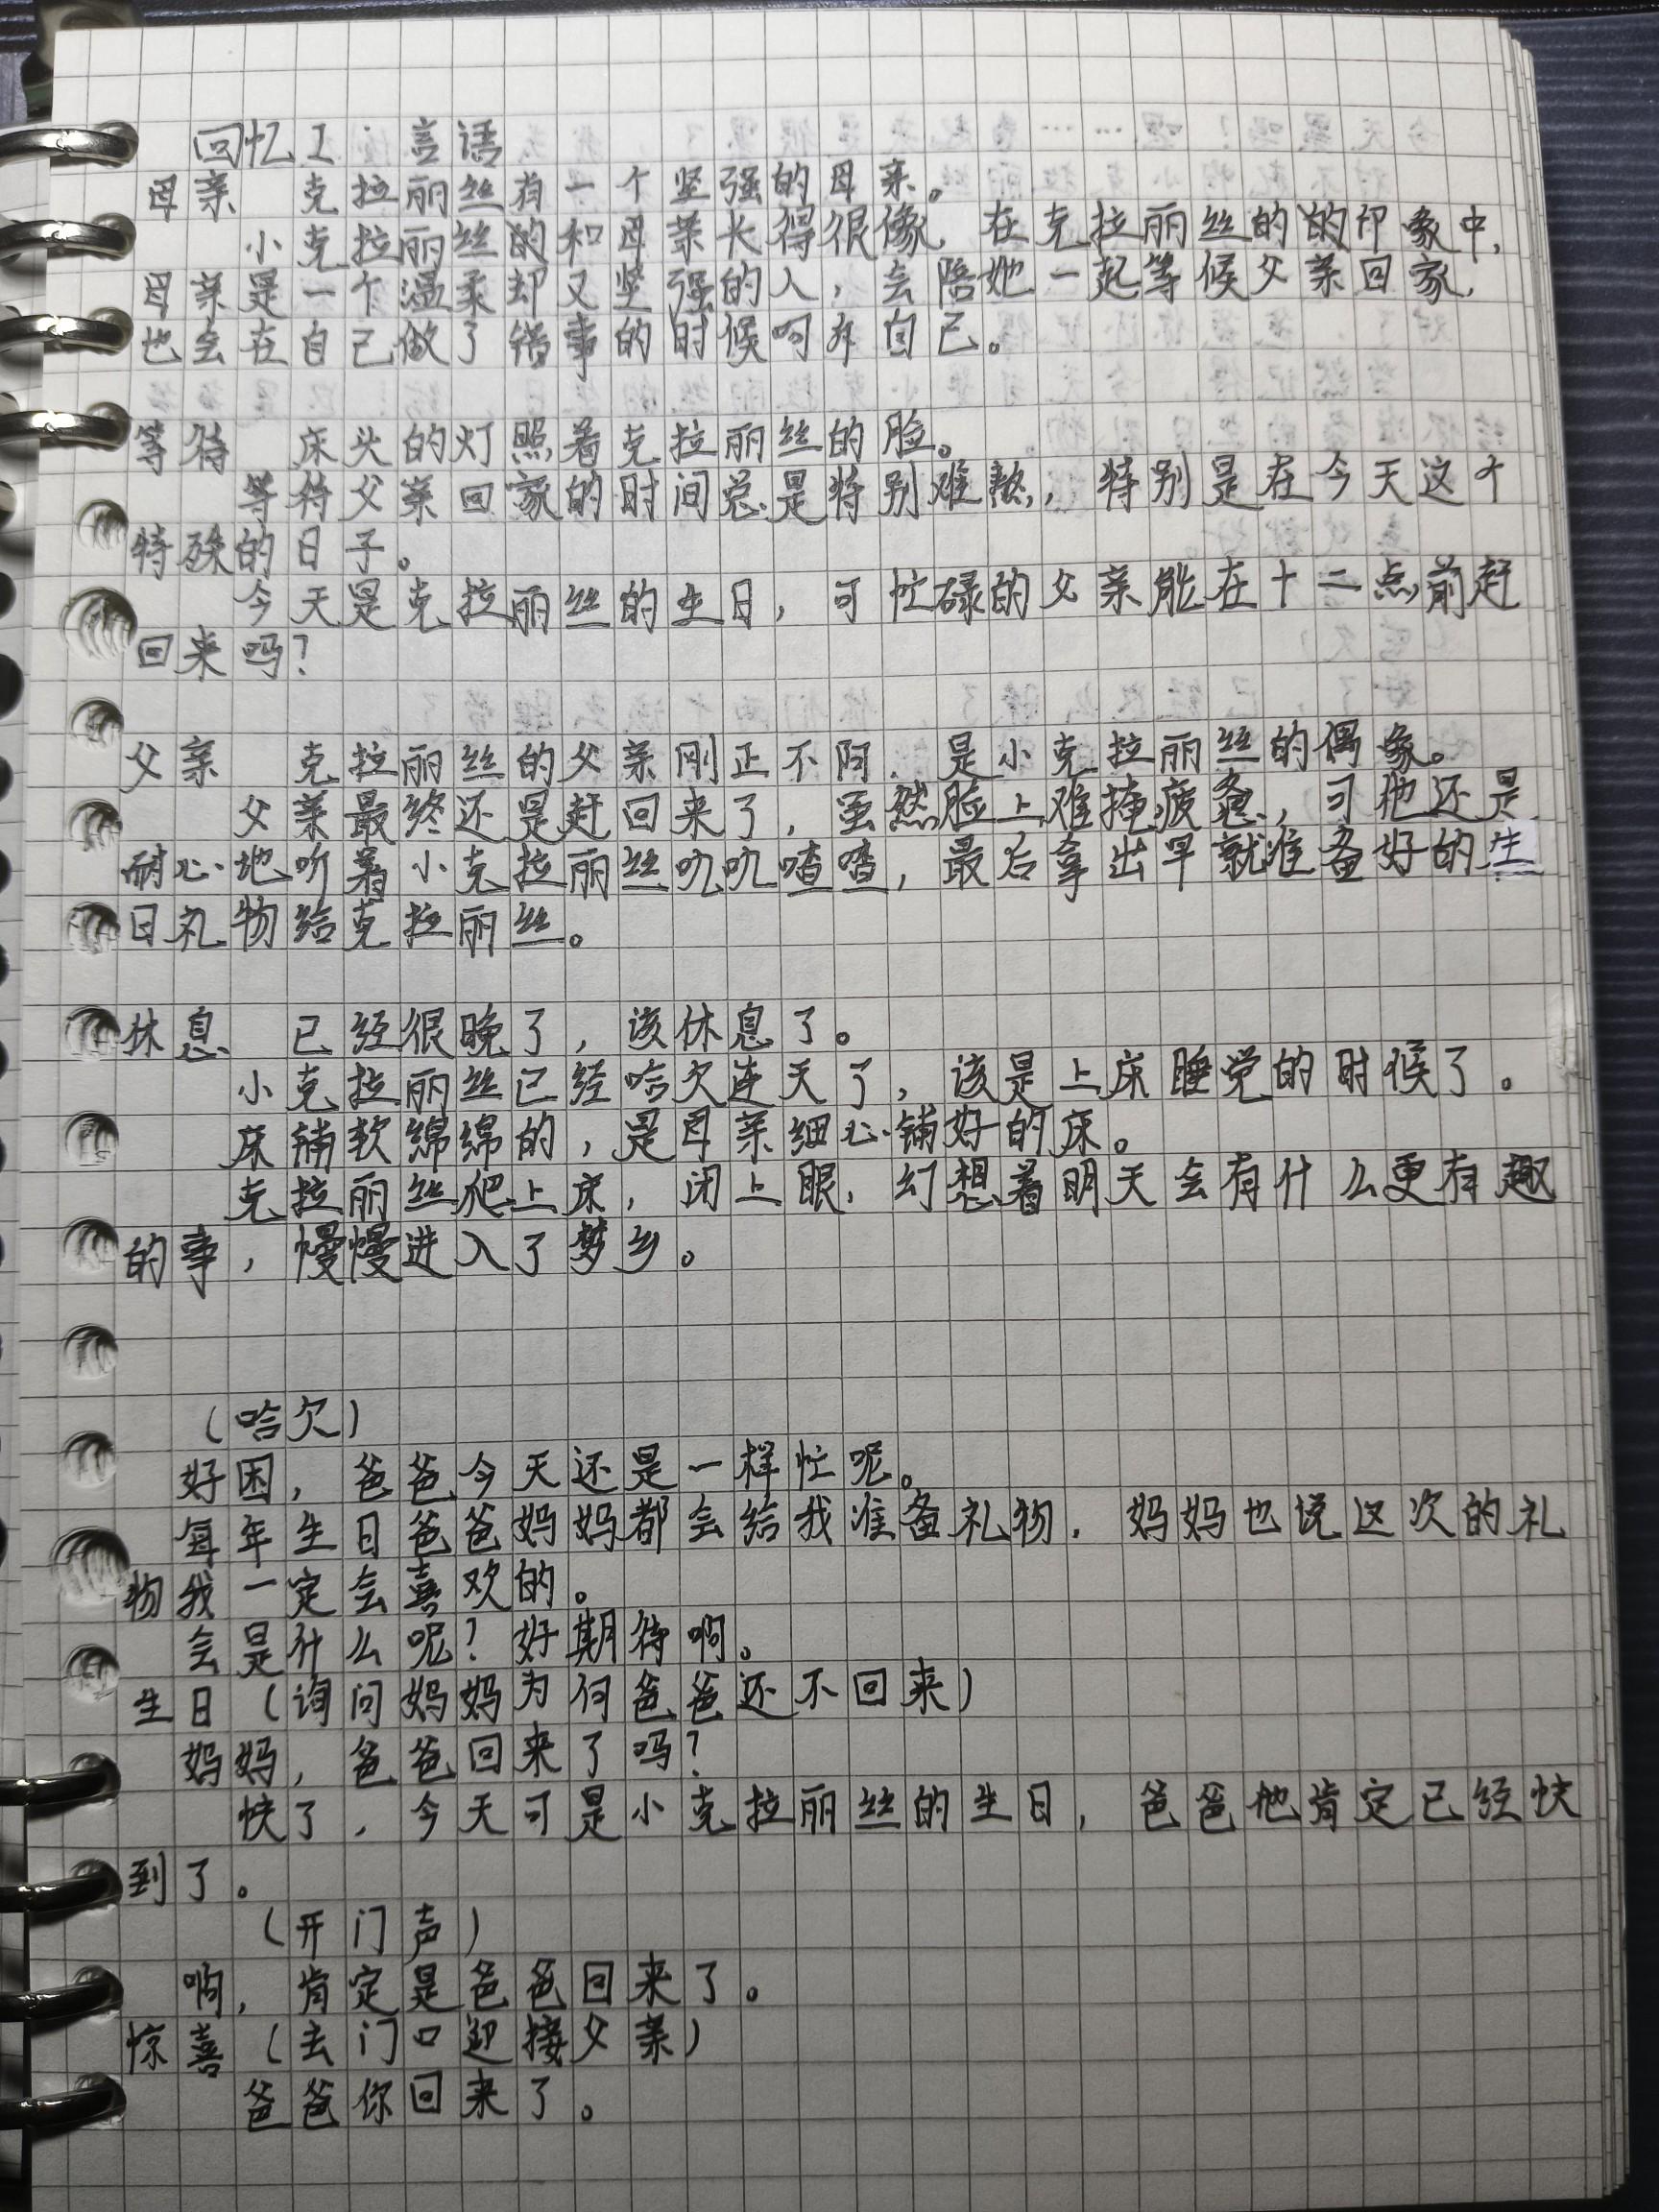 回忆I：言语
母亲 克拉丽丝有一个坚强的母亲。
小克拉丽丝的和母亲长得很像，在克拉丽丝的的印象中，
母亲是一个温柔却又坚强的人，会陪她一起等候父亲回家，
也会在自己做了错事的时候呵斥自己。
等待 床头的灯照着克拉丽丝的脸。
等待父亲回家的时间总是特别难熬，特别是在今天这个
特殊的日子。
今天是克拉丽丝的生日，可忙碌的父亲能在十二点前赶
回来吗？
父亲 克拉丽丝的父亲刚正不阿，是小克拉丽丝的偶象。
父亲最终还是赶回来了，虽然脸上难掩疲惫，可他还是
耐心地听着小克拉丽丝叽叽喳喳，最后拿出早就准备好的生
日礼物给克拉丽丝。
休息 已经很晚了，该休息了。
小克拉丽丝已经哈欠连天了，该是上床睡觉的时候了。
床铺软绵绵的，是母亲细心铺好的床。
克拉丽丝爬上床，闭上眼，幻想着明天会有什么更有趣
的事，慢慢进入了梦乡。
（哈欠）
好困，爸爸今天还是一样忙呢。
每年生日爸爸妈妈都会给我准备礼物，妈妈也说这次的礼
物我一定会喜欢的。
会是什么呢？好期待啊。
生日（询问妈妈为何爸爸还不回来）
妈妈，爸爸回来了吗？
快了，今天可是小克拉丽丝的生日，爸爸他肯定已经快
到了。
（开门声）
哟，肯定是爸爸回来了。
惊喜（去门口迎接父亲）
爸爸你回来了。